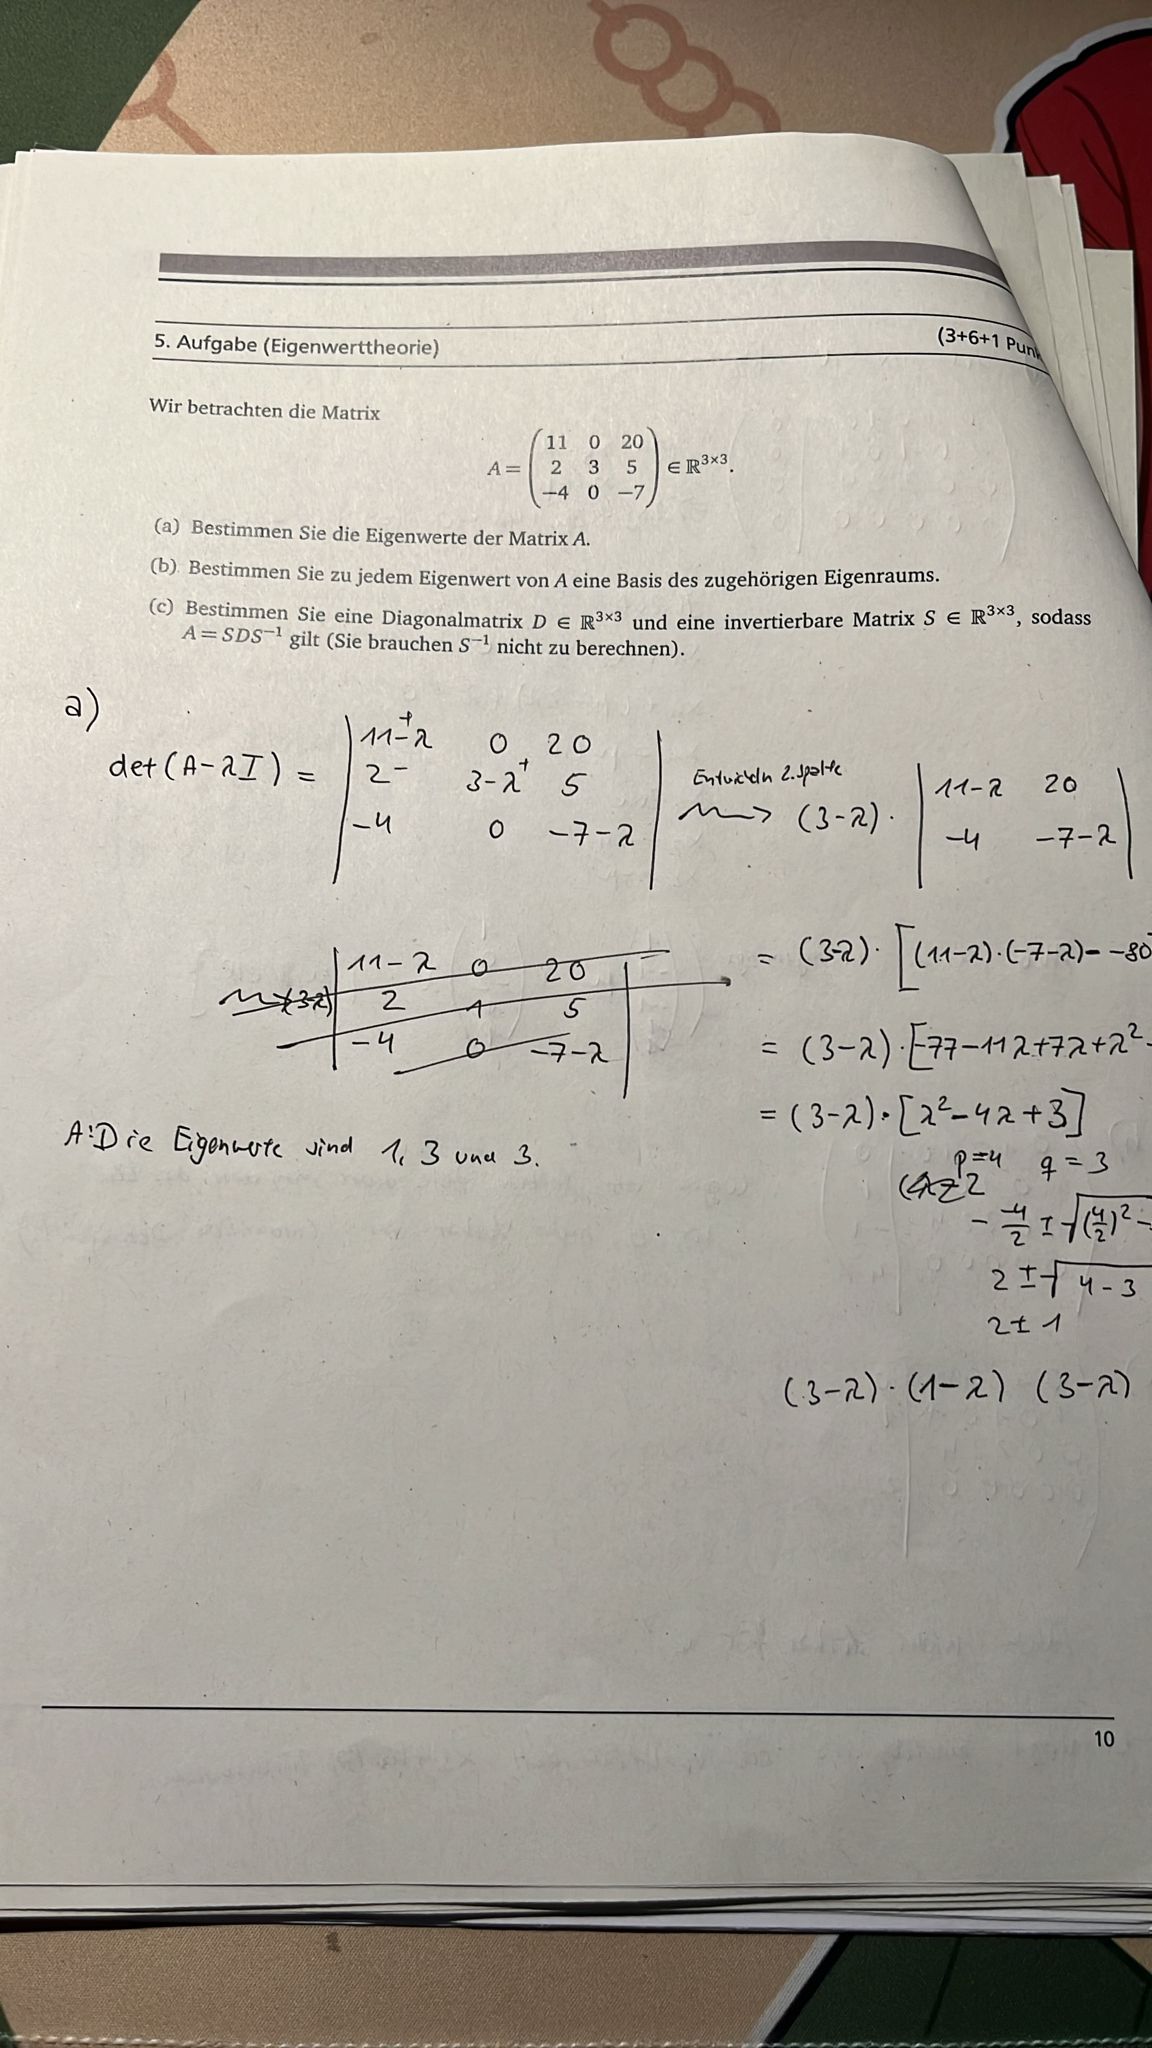 5. Aufgabe (Eigenwerttheorie) (3+6+1 Pun
Wir betrachten die Matrix
A = ( 11 0 20
2 3 5
−4 0 −7 ) ∈ ℝ³ˣ³.
(a) Bestimmen Sie die Eigenwerte der Matrix A.
(b) Bestimmen Sie zu jedem Eigenwert von A eine Basis des zugehörigen Eigenraums.
(c) Bestimmen Sie eine Diagonalmatrix D ∈ ℝ³ˣ³ und eine invertierbare Matrix S ∈ ℝ³ˣ³, sodass
A = SDS⁻¹ gilt (Sie brauchen S⁻¹ nicht zu berechnen).
a)
det(A-λI) = | 11-λ + 0 20 |
| 2 - 3-λ + 5 |
| -4 0 -7-λ |
Entwickeln 2. Spalte
(3-λ) · | 11-λ 20 |
| -4 -7-λ |
| 11-λ 0 20 |
(3-λ) | 2 1 5 |
| -4 0 -7-λ |
= (3-λ) · [(11-λ)·(-7-λ)- -80
= (3-λ) · [-77-11λ+7λ+λ²
= (3-λ) · [λ²-4λ+3]
p=4 q=3
- -4/2 ± √(4/2)² -
2 ± √4-3
2 ± 1
(3-λ) · (1-λ) (3-λ)
A: Die Eigenwerte sind 1, 3 und 3.
10